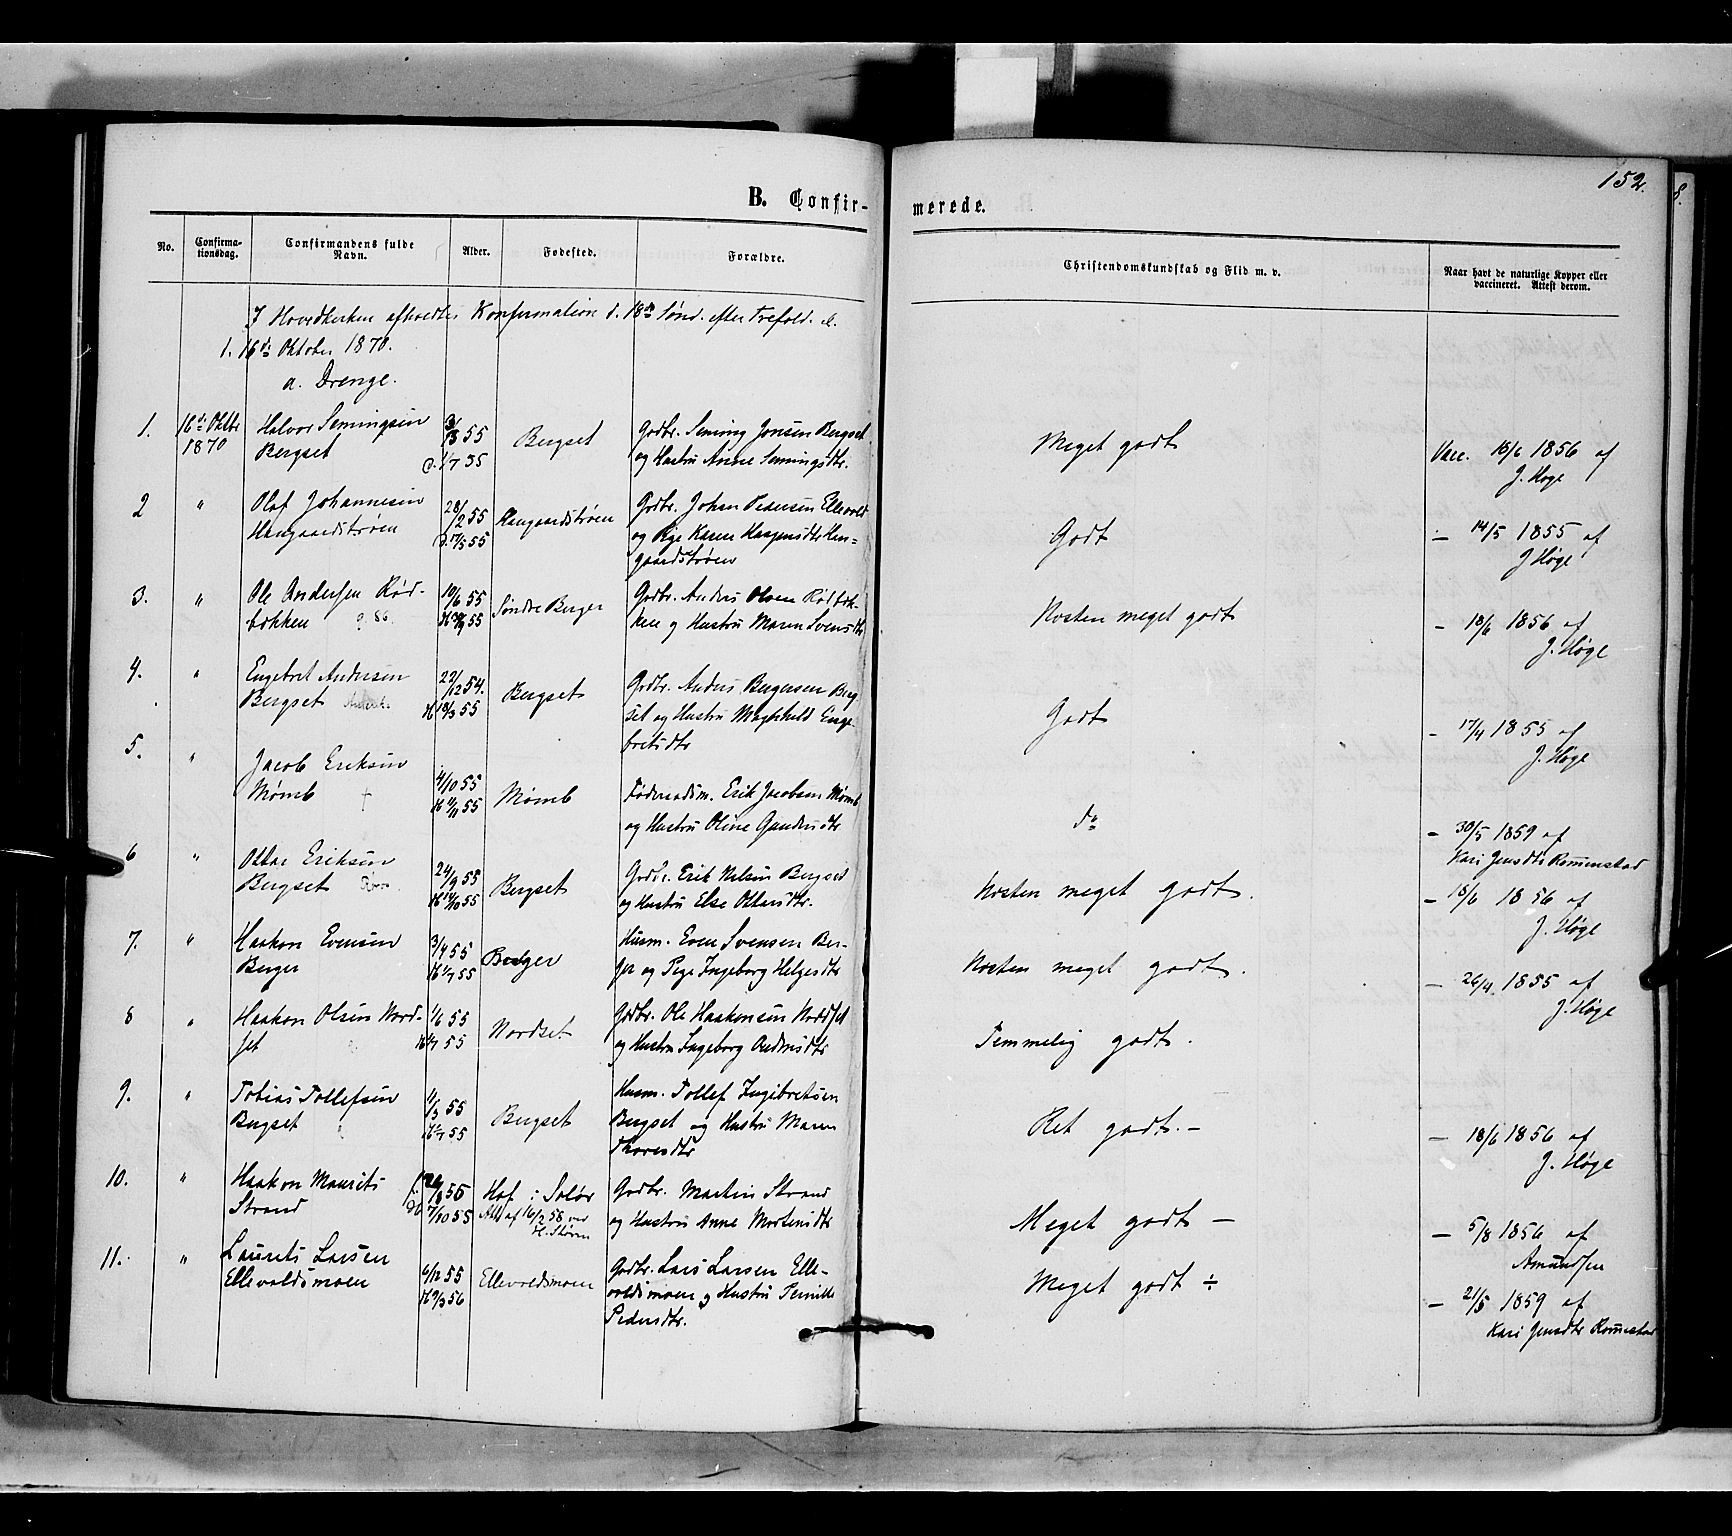 152.
B. Confir-
merede.
No.
Confirma-
tionsdag.
Confirmandens fulde
Navn.
Alder.
Fødested.
Forældre.
Christendomskundskab og Flid m. v.
Naar havt de naturlige Kopper eller
vaccineret. Attest derom.
I Hovedkirken afholdtes Konfirmation d. 18de Sønd. efter Trefold. d.
1. 16de Oktober 1870.
a. Drenge.
1. 16de Oktbr Halvor Semingsen 55 Bergset Gdbr. Seming Jonsen Bergset Meget godt Vacc. 18/6 1856 af
1870 Bergset d. 1/7 55 og Hustru Anne Semingsdtr. J. Høge
2 " Olaf Johannesen 28/2 55 Haugaardstrøen Gdbr. Johan Pedersen Ellevold Godt — 14/5 1855 af
Haugaardstrøen d. 17/5 55 og Pige Karen Haagensdtr Hau=
gaardstrøen J Høge
3. " Ole Andersen Rød- 10/6 55 Søndre Berger Gdbr. Anders Olsen Rødbæk- Næsten meget godt - 18/6 1856 af
bækken 55 ken og Hustru Maren Svensdtr J. Høge
4. " Engebret Andersen 22/12 54. Bergset Gdbr. Anders Bergersen Berg- Godt - 17/4 1855 af
Bergset 18/3 55 set og Hustru Magnhild Enge-
bretsdtr J. Høge
5. " Jacob Eriksen 4/10 55 Mømb Føderaadsm. Erik Jacobsen Mømb do - 30/5 1859 af
Mømb † 11/11 55 og Hustru Oline Gundersdtr Kari Jensdtr Romenstad
6 " Ottar Eriksen 24/9 55 Bergset Gdbr. Erik Nelsen Bergset Næsten meget godt. - 18/6 1856 af
Bergset 14/10 55 og Hustru Else Ottarsdtr. J. Høge
7. " Haakon Evensen 3/4 55 Berger Husm. Even Svensen Ber- Næsten meget godt. — 26/4. 1855 af
Berger 55 ger og Pige Ingeborg Helgesdtr J. Høge
8 " Haakon Olsen Nord- 1/6 55 Nordset Gdbr. Ole Haakonsen Nordset Temmelig godt.
set 55 og Hustru Ingeborg Andersdtr
9. " Tobias Tollefsen 1/5 55 Bergset Husm. Tollef Ingebretsen Ret godt. — — 18/6 1856 af
Bergset 55 Bergset og Hustru Maren
Thoresdtr J. Høge
10. " Haakon Maurits 55 Hof i Solør Gdbr. Martin Strand Meget godt — — 5/8 1856 af
Strand 7/10 55 Att. af 16/2 58 og Hustru Anne Mortensdtr Amundsen
11. " Laurits Larsen 6/12 55 Ellevoldsmoen Gdbr. Lars Larsen Elle- Meget godt ÷ — 21/5 1859 af
Ellevoldsmoen 9/3 56 voldsmoen og Hustru Pernille
Pedersdtr. Kari Jensdtr Romenstad